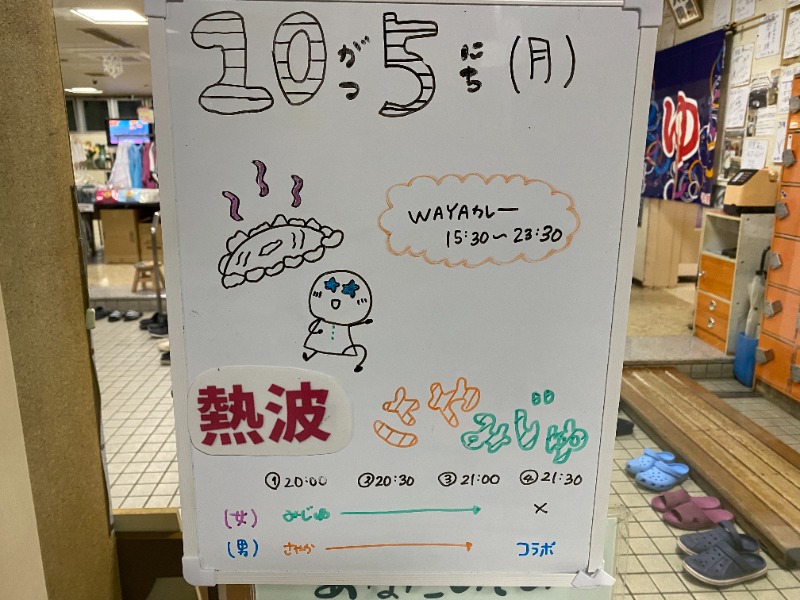 10がつ5にち(月)
WAYAカレー
15:30~23:30
熱波
さやか
みじゅ
①20:00 ②20:30 ③21:00 ④21:30
(女) みじゅ → ×
(男) さやか → コラボ
ゆ